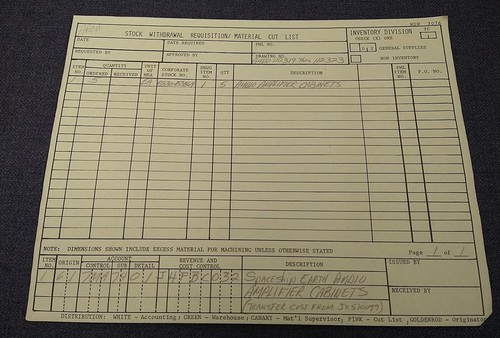 STOCK WITHDRAWAL REQUISITION/MATERIAL CUT LIST
INVENTORY DIVISION
CHECK (X) ONE
GENERAL SUPPLIES
NON INVENTORY
DATE
DATE REQUIRED
PML NO.
REQUESTED BY
APPROVED BY
DRAWING NO.
ITEM NO. QUANTITY ORDERED RECEIVED UNIT OF MEA CORPORATE STOCK NO. DWNG ITEM NO. QTY DESCRIPTION PML ITEM NO. P.O. NO.
1 5 EA 1 5 AUDIO AMPLIFIER CABINETS
NOTE: DIMENSIONS SHOWN INCLUDE EXCESS MATERIAL FOR MACHINING UNLESS OTHERWISE STATED
Page 1 of 1
ITEM NO. ORIGIN ACCOUNT CONTROL SUB DETAIL REVENUE AND COST CONTROL DESCRIPTION
ISSUED BY
SPACESHIP EARTH AUDIO
AMPLIFIER CABINETS
RECEIVED BY
(TRANSFER COST FROM
DISTRIBUTION: WHITE - Accounting; GREEN - Warehouse; CANARY - Mat'l Supervisor; PINK - Cut List; GOLDENROD - Originator